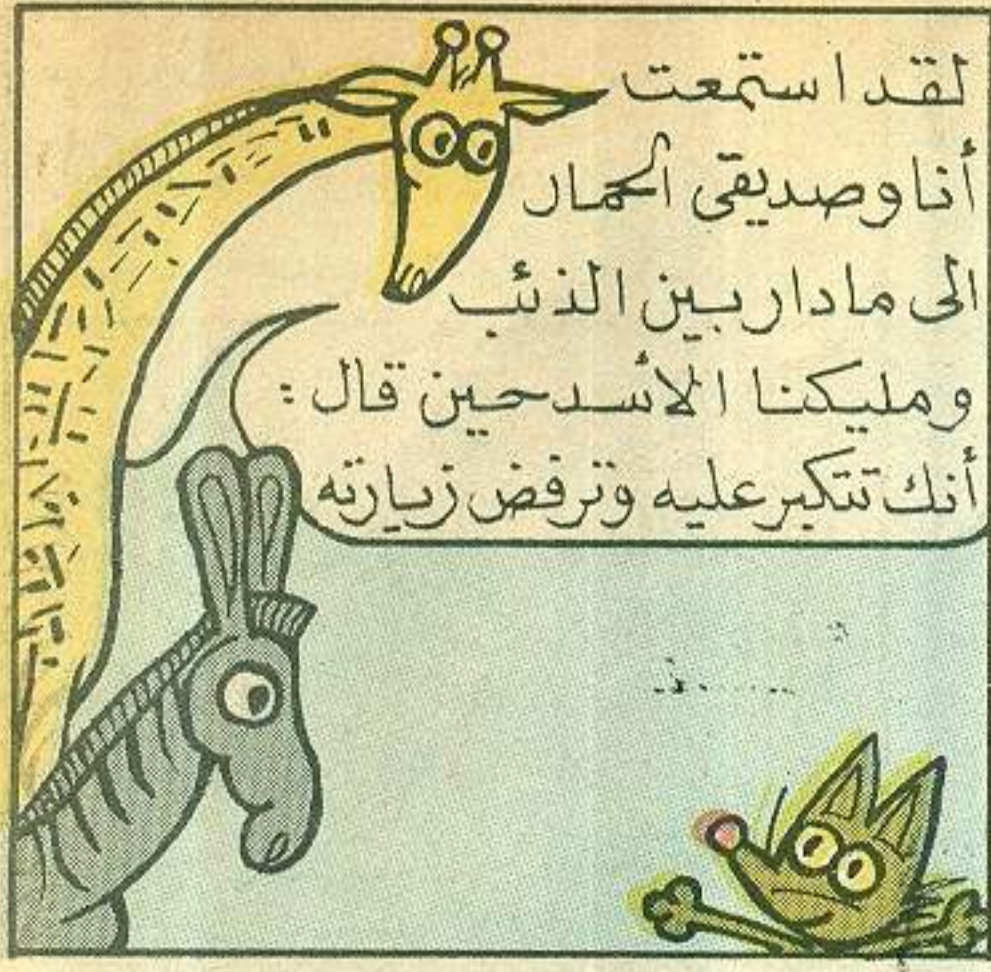 لقد استمعت
أنا وصديقى الحمار
الى مادار بين الذئب
ومليكنا الأسد حين قال :
أنك تتكبر عليه وترفض زيارته